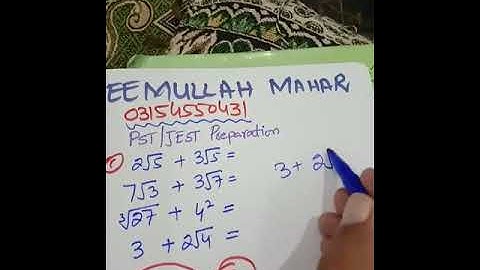 EEMULLAH MAHAR
03154550431
PST/JEST Preparation
2√5 + 3√5 =
7√3 + 3√7 =
∛27 + 4² =
3 + 2√4 =
3 + 2√